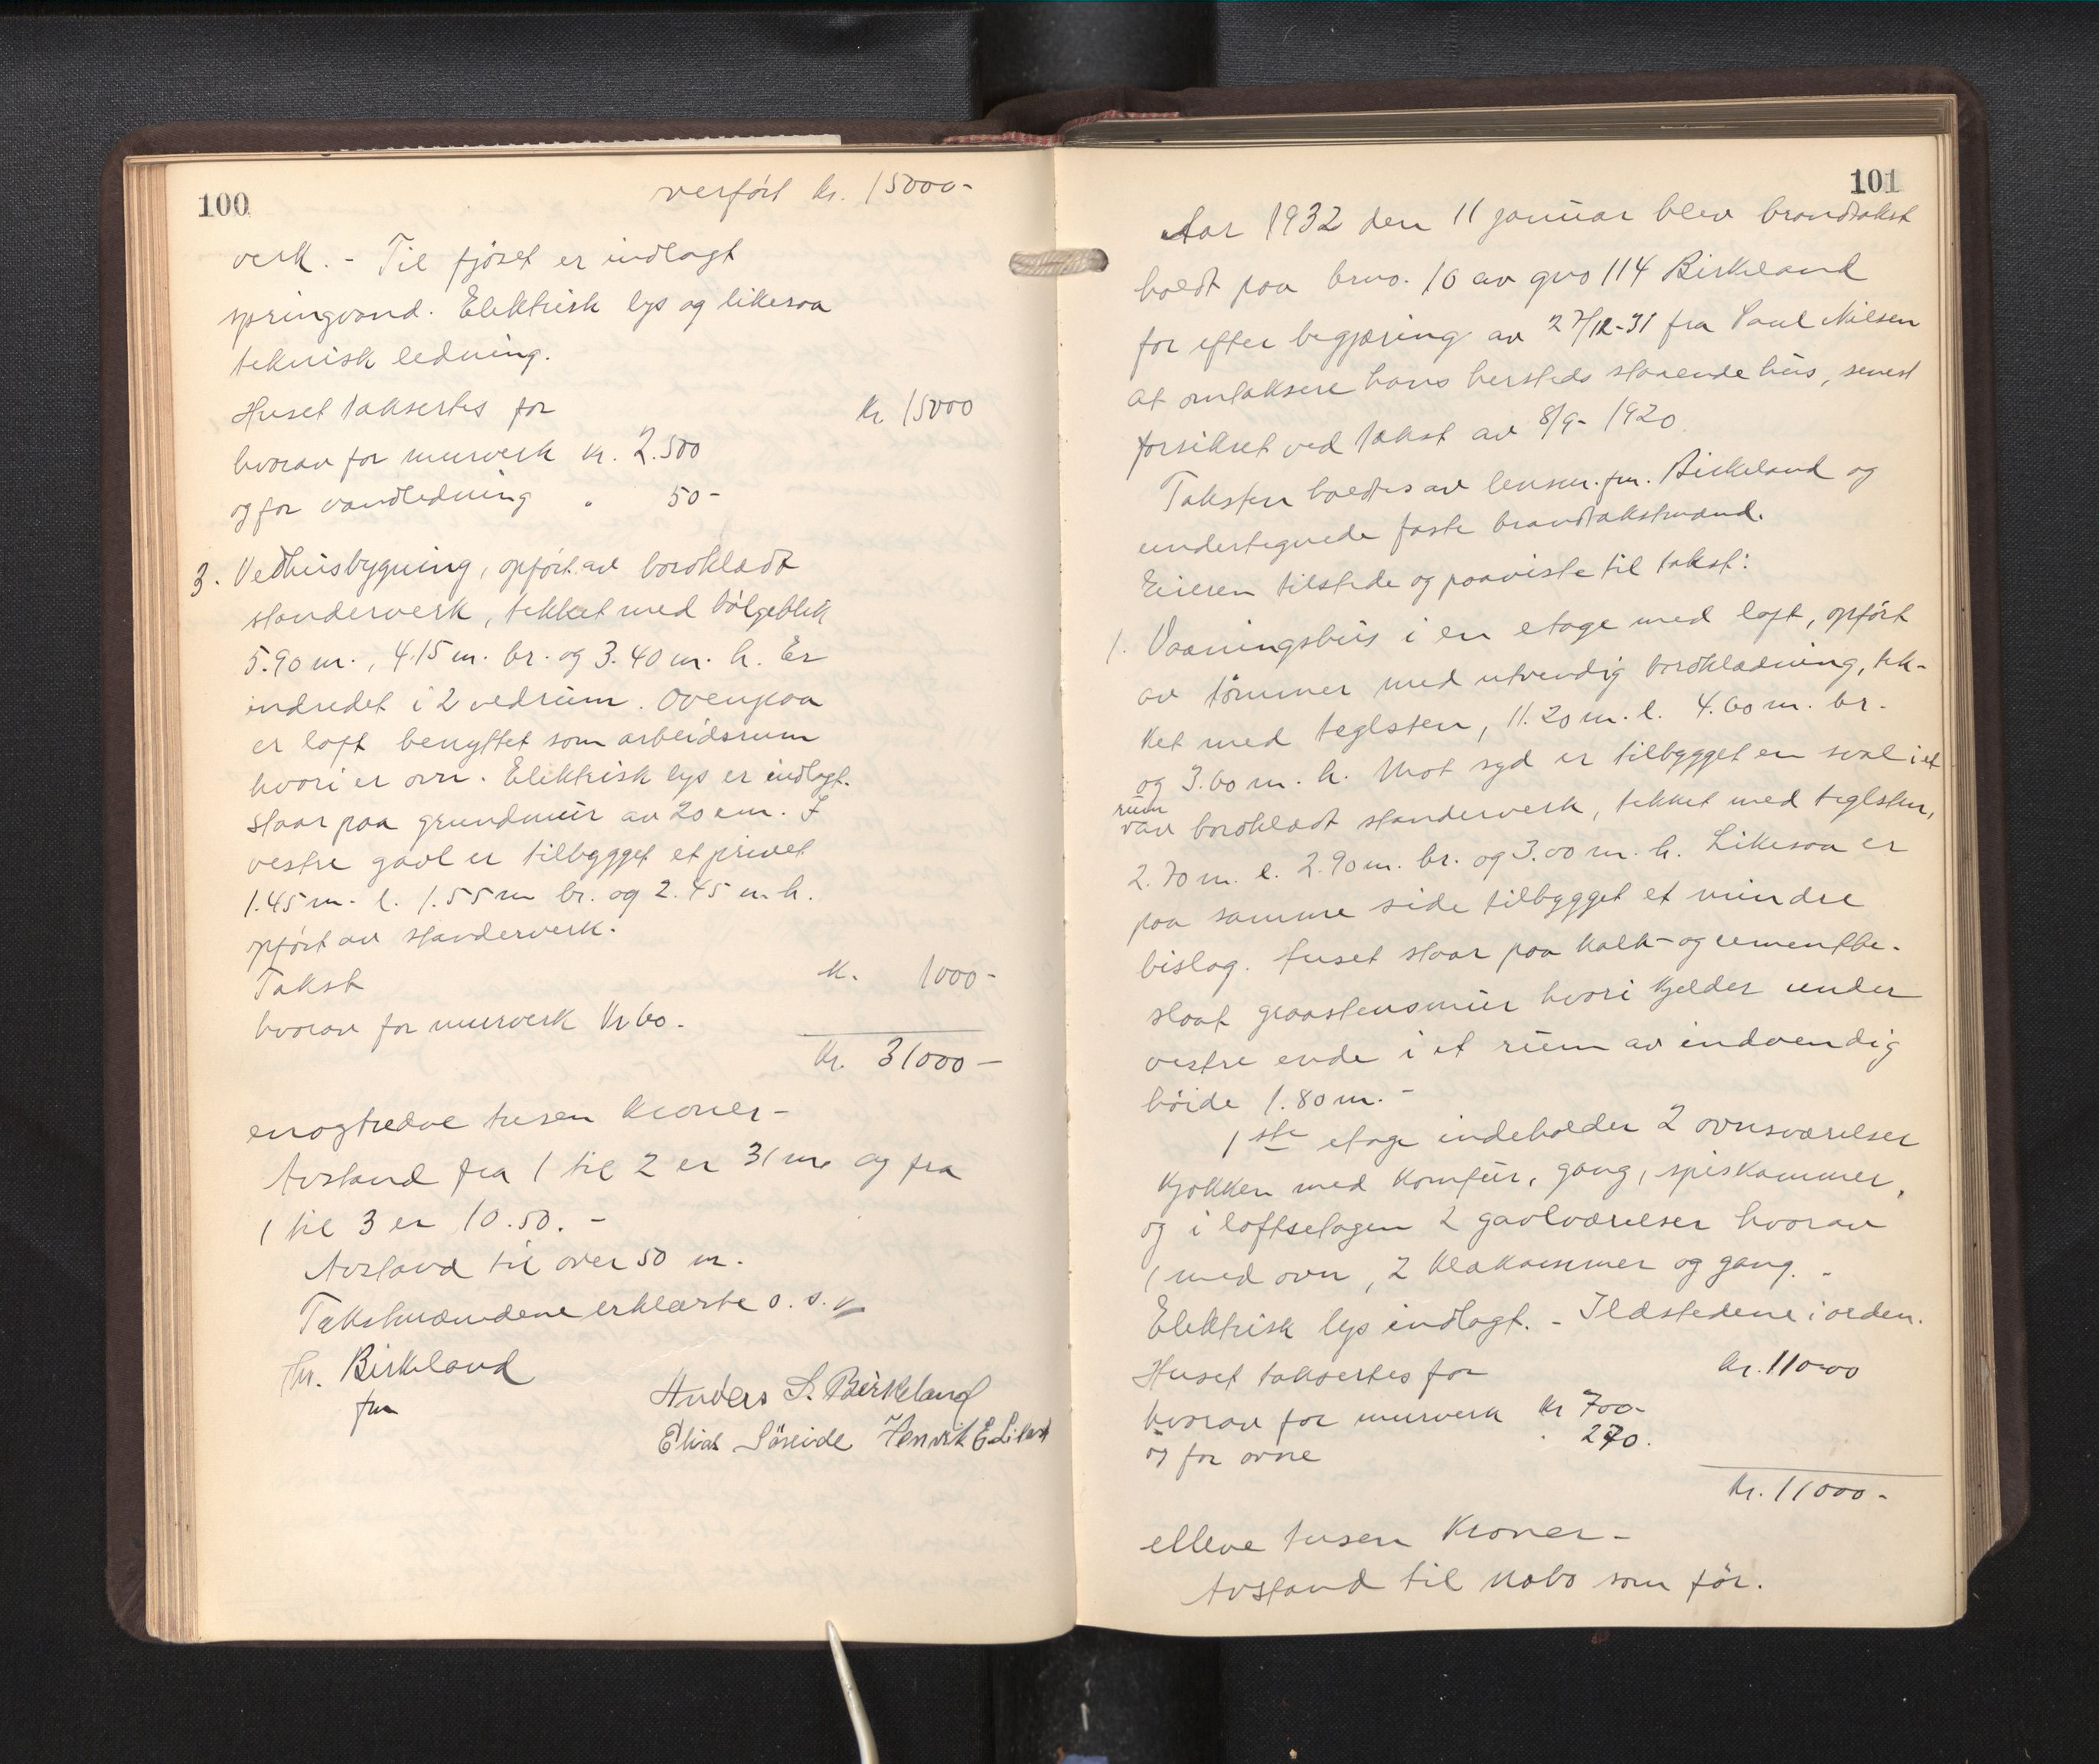 100
verført kr. 15000-
verk. - Til fjøset er indlagt
springvand. Elektrisk lys og likesaa
teknisk ledning.
Huset taksertes for kr 15000
hvorav for murverk kr. 2.500
og for vandledning " 50-
3. Vedhusbygning, opført av bordklædt
standerverk, tekket med bølgeblik
5.90 m., 4.15 m. br. og 3.40 m. h. Er
indredet i 2 vedrum. Ovenpaa
er loft benyttet som arbeidsrum
hvori er ovn. Elektrisk lys er indlagt.
Staar paa grundmur av 20 cm. I
vestre gavl er tilbygget et privet
1.45 m. l. 1.55 m br. og 2.45 m. h.
opført av standerverk.
Takst kr. 1000-
hvorav for murverk kr 60.
kr. 31000-
enogtredve tusen kroner-
Avstand fra 1 til 2 er 31 m. og fra
1 til 3 er 10.50. -
Avstand til over 50 m.
Takstmændene erklærte o. s. v.
Birkeland
fm
Anders S. Birkeland
Elias Søreide Henrik E.
101
Aar 1932 den 11 januar blev brandtakst
holdt paa brno. 10 av gno 114 Birkeland
for efter begjæring av 27/12-31 fra Paul Nilsen
at omtaksere hans hersteds staaende hus, senest
forsikret ved takst av 8/9-1920.
Taksten holdtes av lensm. fm. Birkeland og
undertegnede faste brandtakstmænd.
Eieren tilstede og paaviste til takst:
1. Vaaningshus i en etage med loft, opført
av tømmer med utvendig bordklædning, tek-
ket med teglsten, 11.20 m. l. 4.60 m. br.
og 3.60 m. h. Mot syd er tilbygget en sval i et
rum
av bordklædt standerverk, tekket med teglsten,
2.70 m. l. 2.90 m. br. og 3.00 m. h. Likesaa er
paa samme side tilbygget et mindre
bislag. Huset staar paa kalk- og cementbe-
slaat graastensmur hvori kjelder under
vestre ende i et rum av indvendig
høide 1.80 m. -
1ste etage indeholder 2 ovnsværelser
kjøkken med komfur, gang, spiskammer,
og i loftsetagen 2 gavlværelser hvorav
1 med ovn, 2 klækammer og gang. -
Elektrisk lys indlagt. - Ildstedene i orden.
Huset taksertes for kr. 11000
hvorav for murverk kr 700-
og for ovne " 270.
kr. 11000-
elleve tusen kroner-
Avstand til nabo som før.